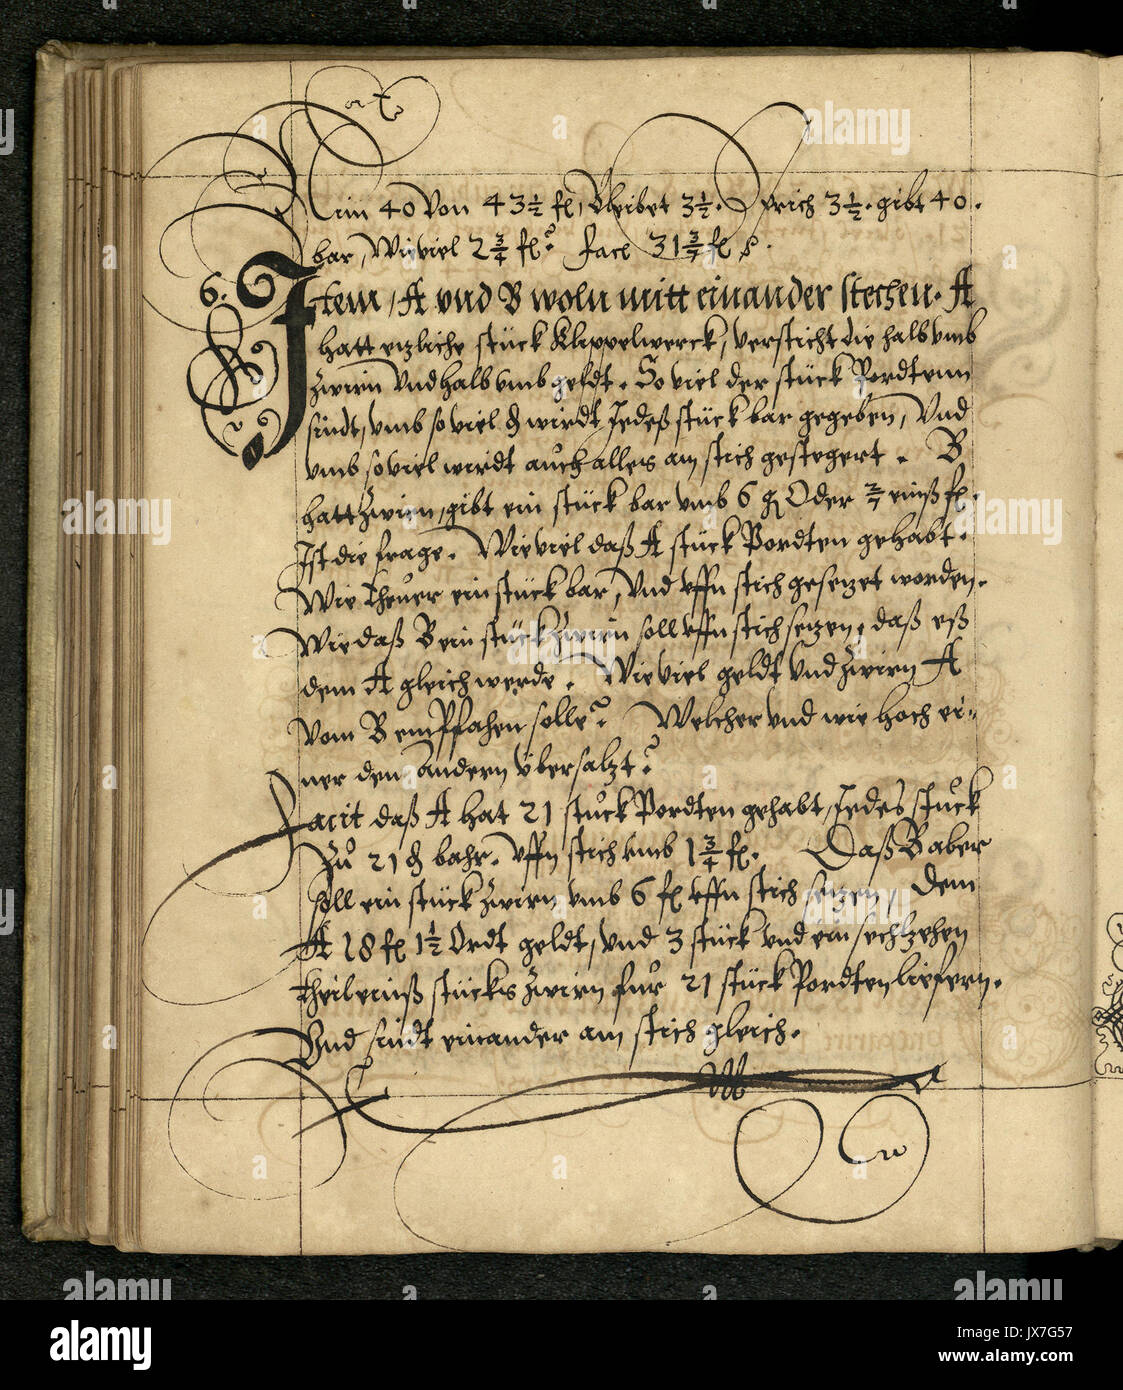 Nim 40 von 43½ fl, bleibet 3½. Sprich 3½. gibt 40.
bar, Wieviel 2¾ fl? facl 31 3/7 fl
6. Item, A vnd B woln mitt einander stechen. A
hatt etzliche stück Klippelwerck, versticht die halb vmb
zwirn Vnd halb vmb geldt. So viel der stück Pordtenn
sindt, vmb so viel g wirdt Jedeß stück bar gegeben, Vnd
vmb so viel wirdt auch alles am stich gestegert. B
hatt zwirn, gibt ein stück bar vmb 6 g Oder 2/7 einß fl.
Ist die frage. Wieviel daß A stück Pordten gehabt.
Wie theuer ein stück bar, Vnd vffn stich gesetzet worden.
Wie daß B ein stück zwirn soll vffn stich setzen, daß eß
dem A gleich werde. Wie viel geldt Vnd zwirn A
Vom B empffahen solle? Welcher vnd wie hoch ei-
ner den andern übersatzt?
Facit daß A hat 21 stuck Pordten gehabt, Jedes stuck
zu 21 g bahr. Vffn stich vmb 1¾ fl. Daß B aber
soll ein stück zwirn vmb 6 fl vffn stich setzen, Dem
A 18 fl 1½ Ordt geldt, Vnd 3 stück vnd ein sechtzehen
theil einß stücks zwirn fur 21 stück Pordten liefern.
Vnd sindt einander am stich gleich.
alamy
Image ID: JX7G57
www.alamy.com